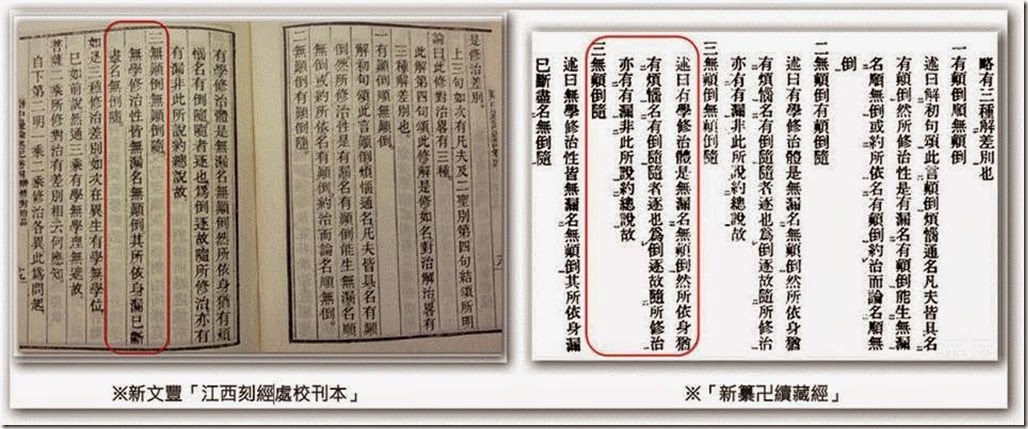 是修治差別。
上三句如次有凡夫及二聖別第四句結頌所明
論曰此修治畧有三種。
此解第四句頌此修解是修如名對治解治畧有
三種解差別也。
一有顛倒順無顛倒。
解初句頌此言顛倒煩惱通名凡夫皆具名有顛
倒然所修治性是有漏名有顛倒能生無漏名順
無倒或約所依名有顛倒約治而論名順無倒。
二無顛倒有顛倒隨。
有學修治體是無漏名無顛倒然所依身猶有煩
惱名有倒隨隨者逐也爲倒逐故隨所修治亦有
有漏非此所說約總說故
三無顛倒無顛倒隨。
無學修治性皆無漏名無顛倒其所依身漏已斷
盡名無倒隨。
如是三種修治差別如次在異生有學無學位。
已如前說然通三乘有學無學理無遮故。
菩薩二乘所修對治有差別相云何應知。
自下第二明一乘二乘修治各異此爲問起。
略有三種解差別也
一有顛倒順無顛倒
述曰解初句頌此言顛倒煩惱通名凡夫皆具名
有顛倒然所修治性是有漏名有顛倒能生無漏
名順無倒或約所依名有顛倒約治而論名順無
倒
二無顛倒有顛倒
述曰有學修治體是無漏名無顛倒然所依身猶
有煩惱名有倒隨隨者逐也爲倒逐凡隨所修治
亦有有漏非此所說約總說故
三無顛倒無顛倒隨
述曰有學修治體是無漏名無顛倒然所依身猶
有煩惱名有倒隨隨者逐也爲倒逐故隨所修治
亦有有漏非此所說約總說故
三無顛倒隨
述曰無學修治性皆無漏名無顛倒其所依身漏
已斷盡名無倒隨
※新文豐「江西刻經處校刊本」
※「新纂卍續藏經」